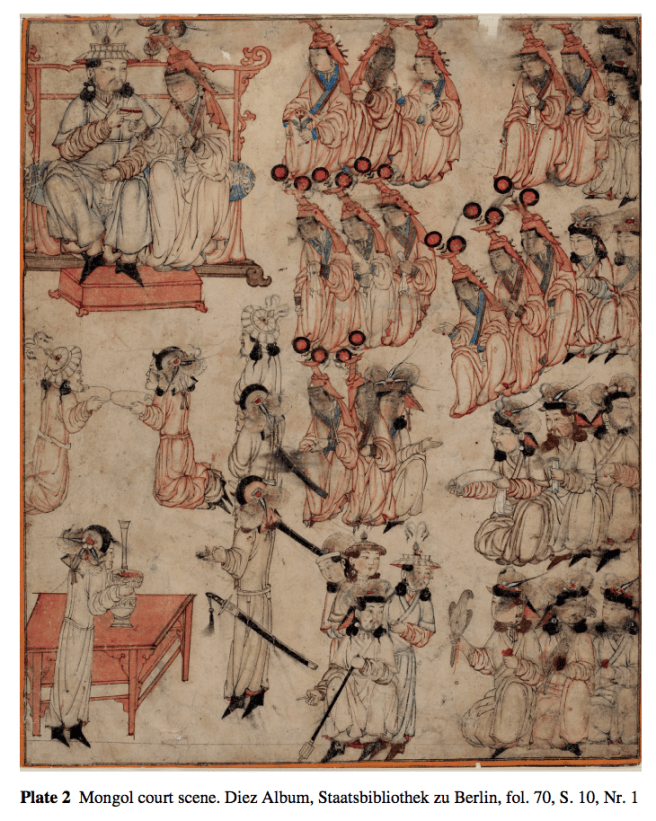 Plate 2 Mongol court scene. Diez Album, Staatsbibliothek zu Berlin, fol. 70, S. 10, Nr. 1